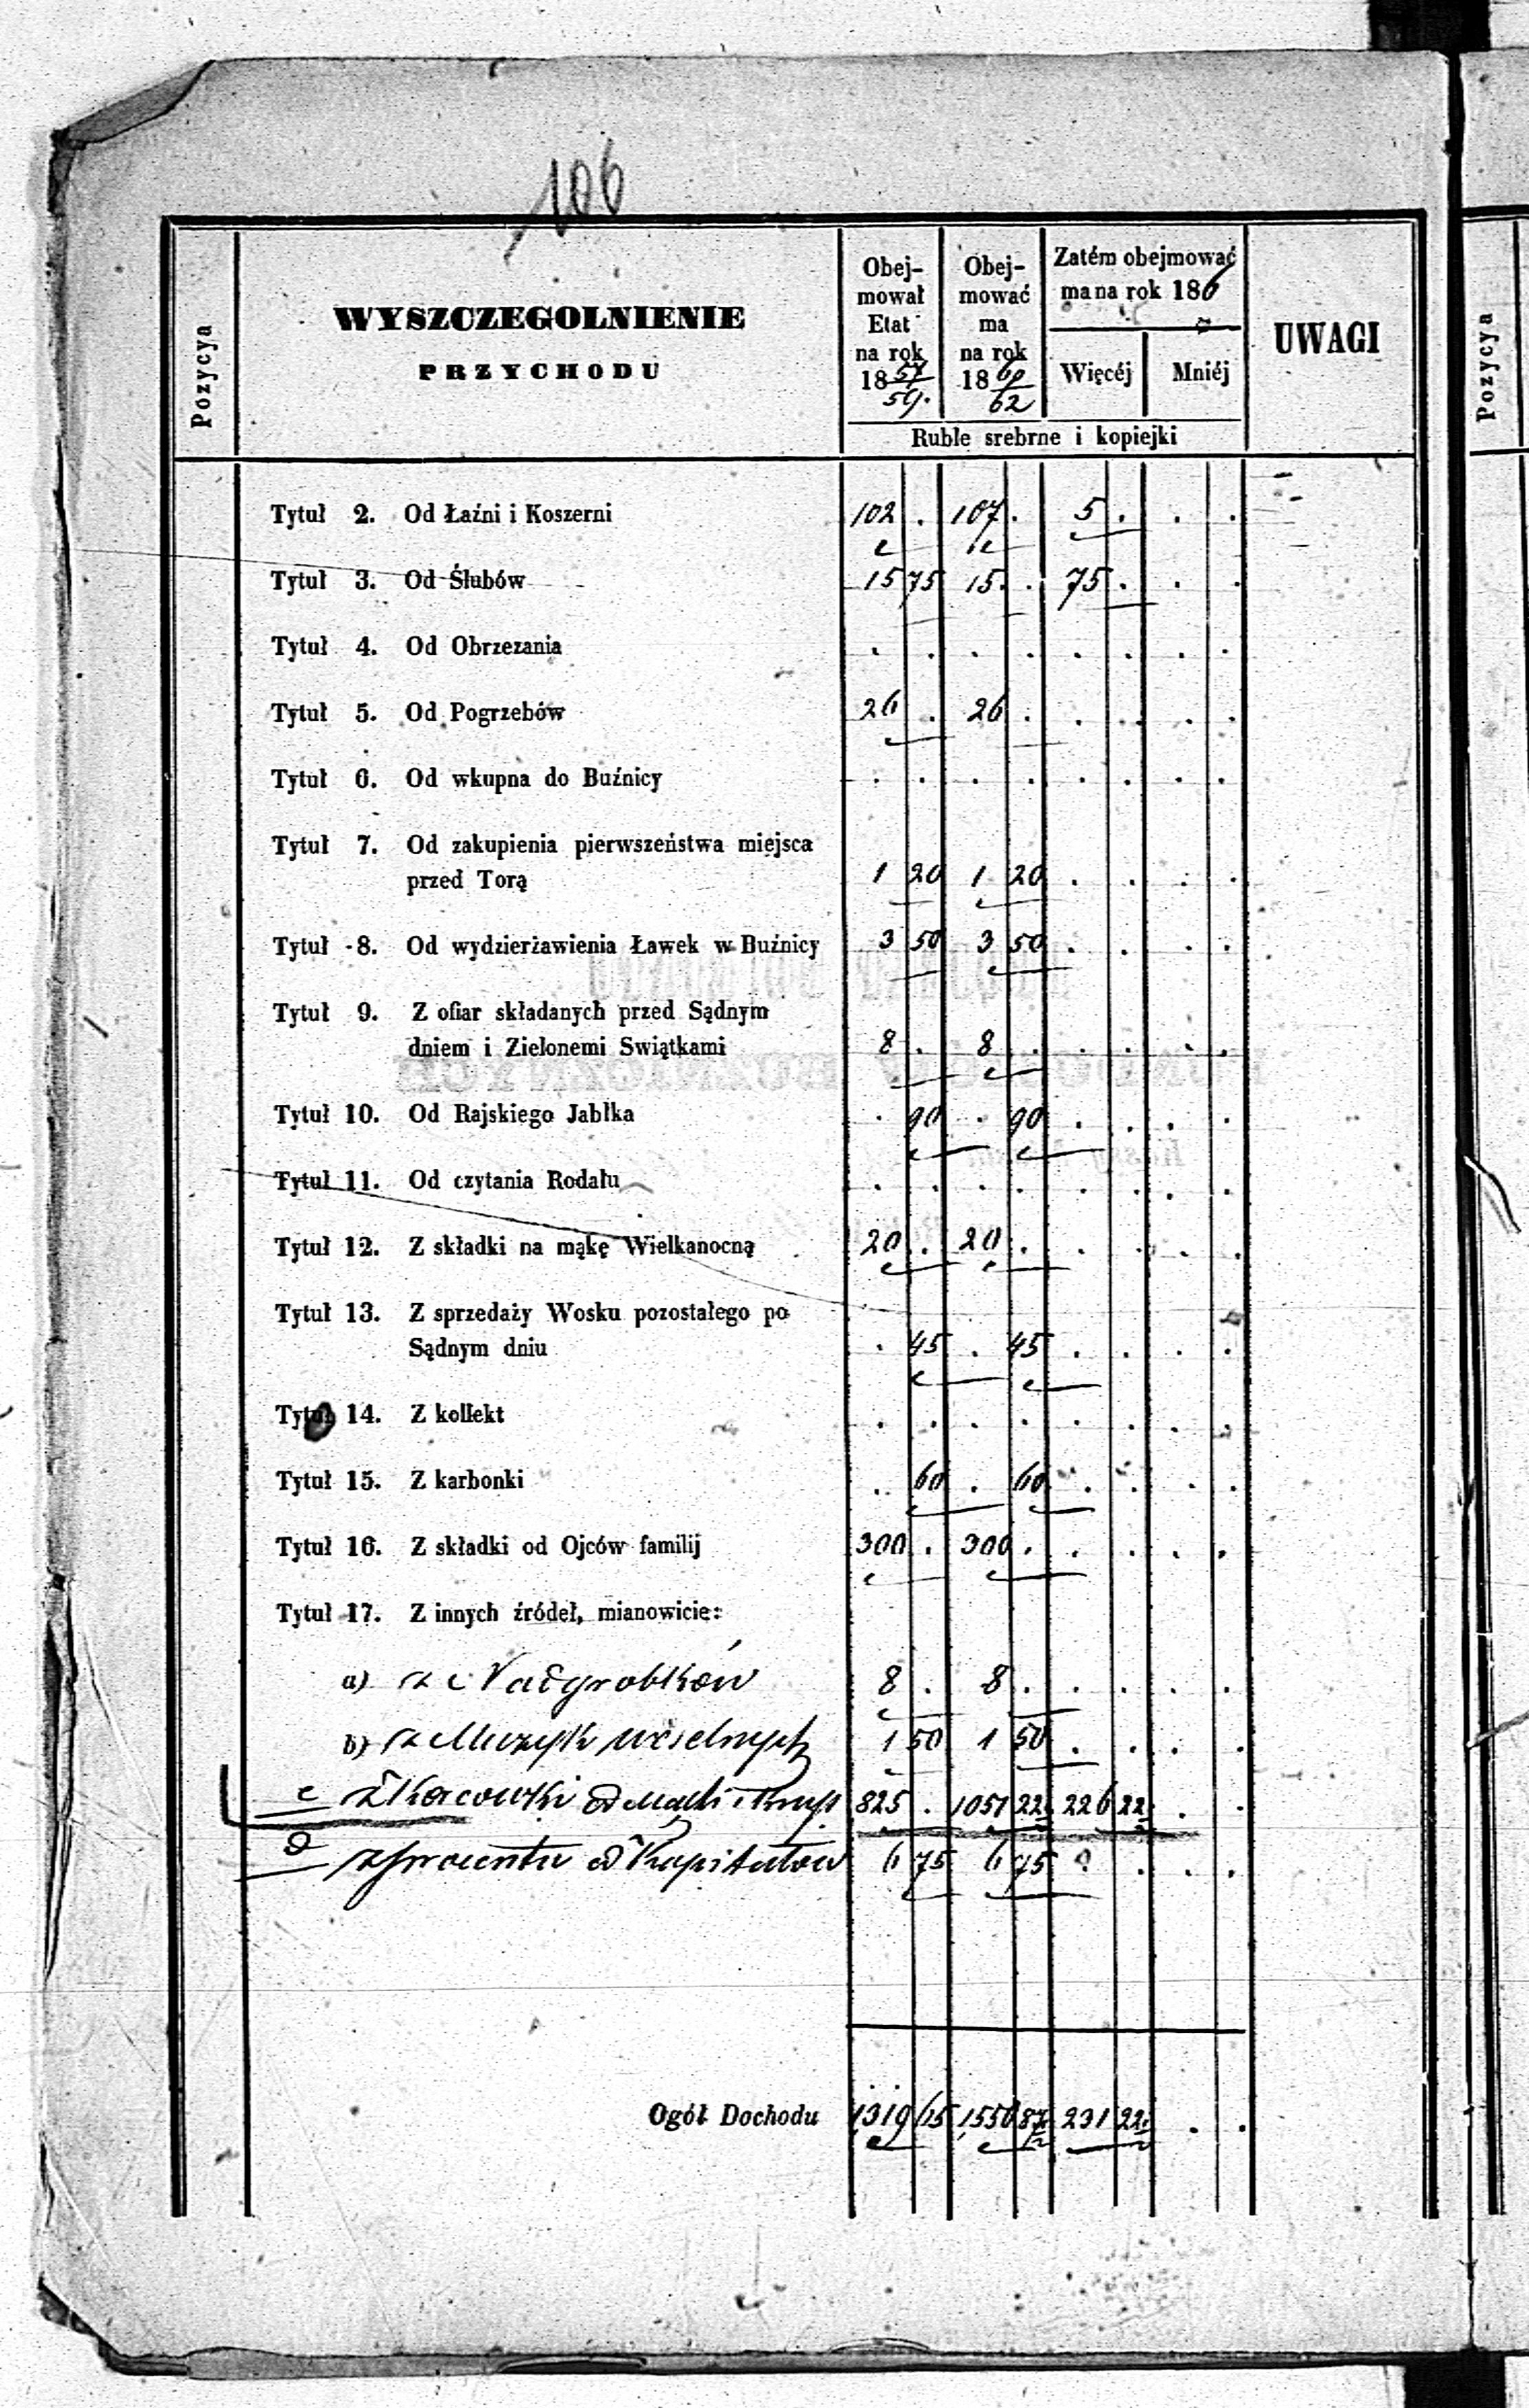 106
Pozycya
WYSZCZEGOLNIENIE
PRZYCHODU
Obej-
mował
Etat
na rok
18 57/59.
Obej-
mować
ma
na rok
18 60/62
Zatém obejmować
ma na rok 186
Więcéj Mniéj
Ruble srebrne i kopiejki
UWAGI
Pozycya
Tytuł 2. Od Łaźni i Koszerni 102 . 107 . 5 . . .
Tytuł 3. Od Ślubów 15 75 15 . . 75 . . .
Tytuł 4. Od Obrzezania . . . . . . . .
Tytuł 5. Od Pogrzebów 26 . 26 . . . . .
Tytuł 6. Od wkupna do Buźnicy . . . . . . . .
Tytuł 7. Od zakupienia pierwszeństwa miejsca
przed Torą 1 20 1 20 . . . .
Tytuł 8. Od wydzierżawienia Ławek w Buźnicy 3 50 3 50 . . . .
Tytuł 9. Z ofiar składanych przed Sądnym
dniem i Zielonemi Swiątkami 8 . 8 . . . . .
Tytuł 10. Od Rajskiego Jabłka . 90 . 90 . . . .
Tytuł 11. Od czytania Rodału . . . . . . . .
Tytuł 12. Z składki na mąkę Wielkanocną 20 . 20 . . . . .
Tytuł 13. Z sprzedaży Wosku pozostałego po
Sądnym dniu . 45 . 45 . . . .
Tytuł 14. Z kollekt . . . . . . . .
Tytuł 15. Z karbonki . 60 . 60 . . . .
Tytuł 16. Z składki od Ojców familij 300 . 300 . . . . .
Tytuł 17. Z innych źródeł, mianowicie:
a) z Nadgrobków 8 . 8 . . . . .
b) z Muzyk weselnych 1 50 1 50 . . . .
c 825 . 1051 22 226 22 . .
d z procentu od Kapitałow 6 75 6 75 . . .
Ogół Dochodu 1319 65 1550 87 231 22 . .